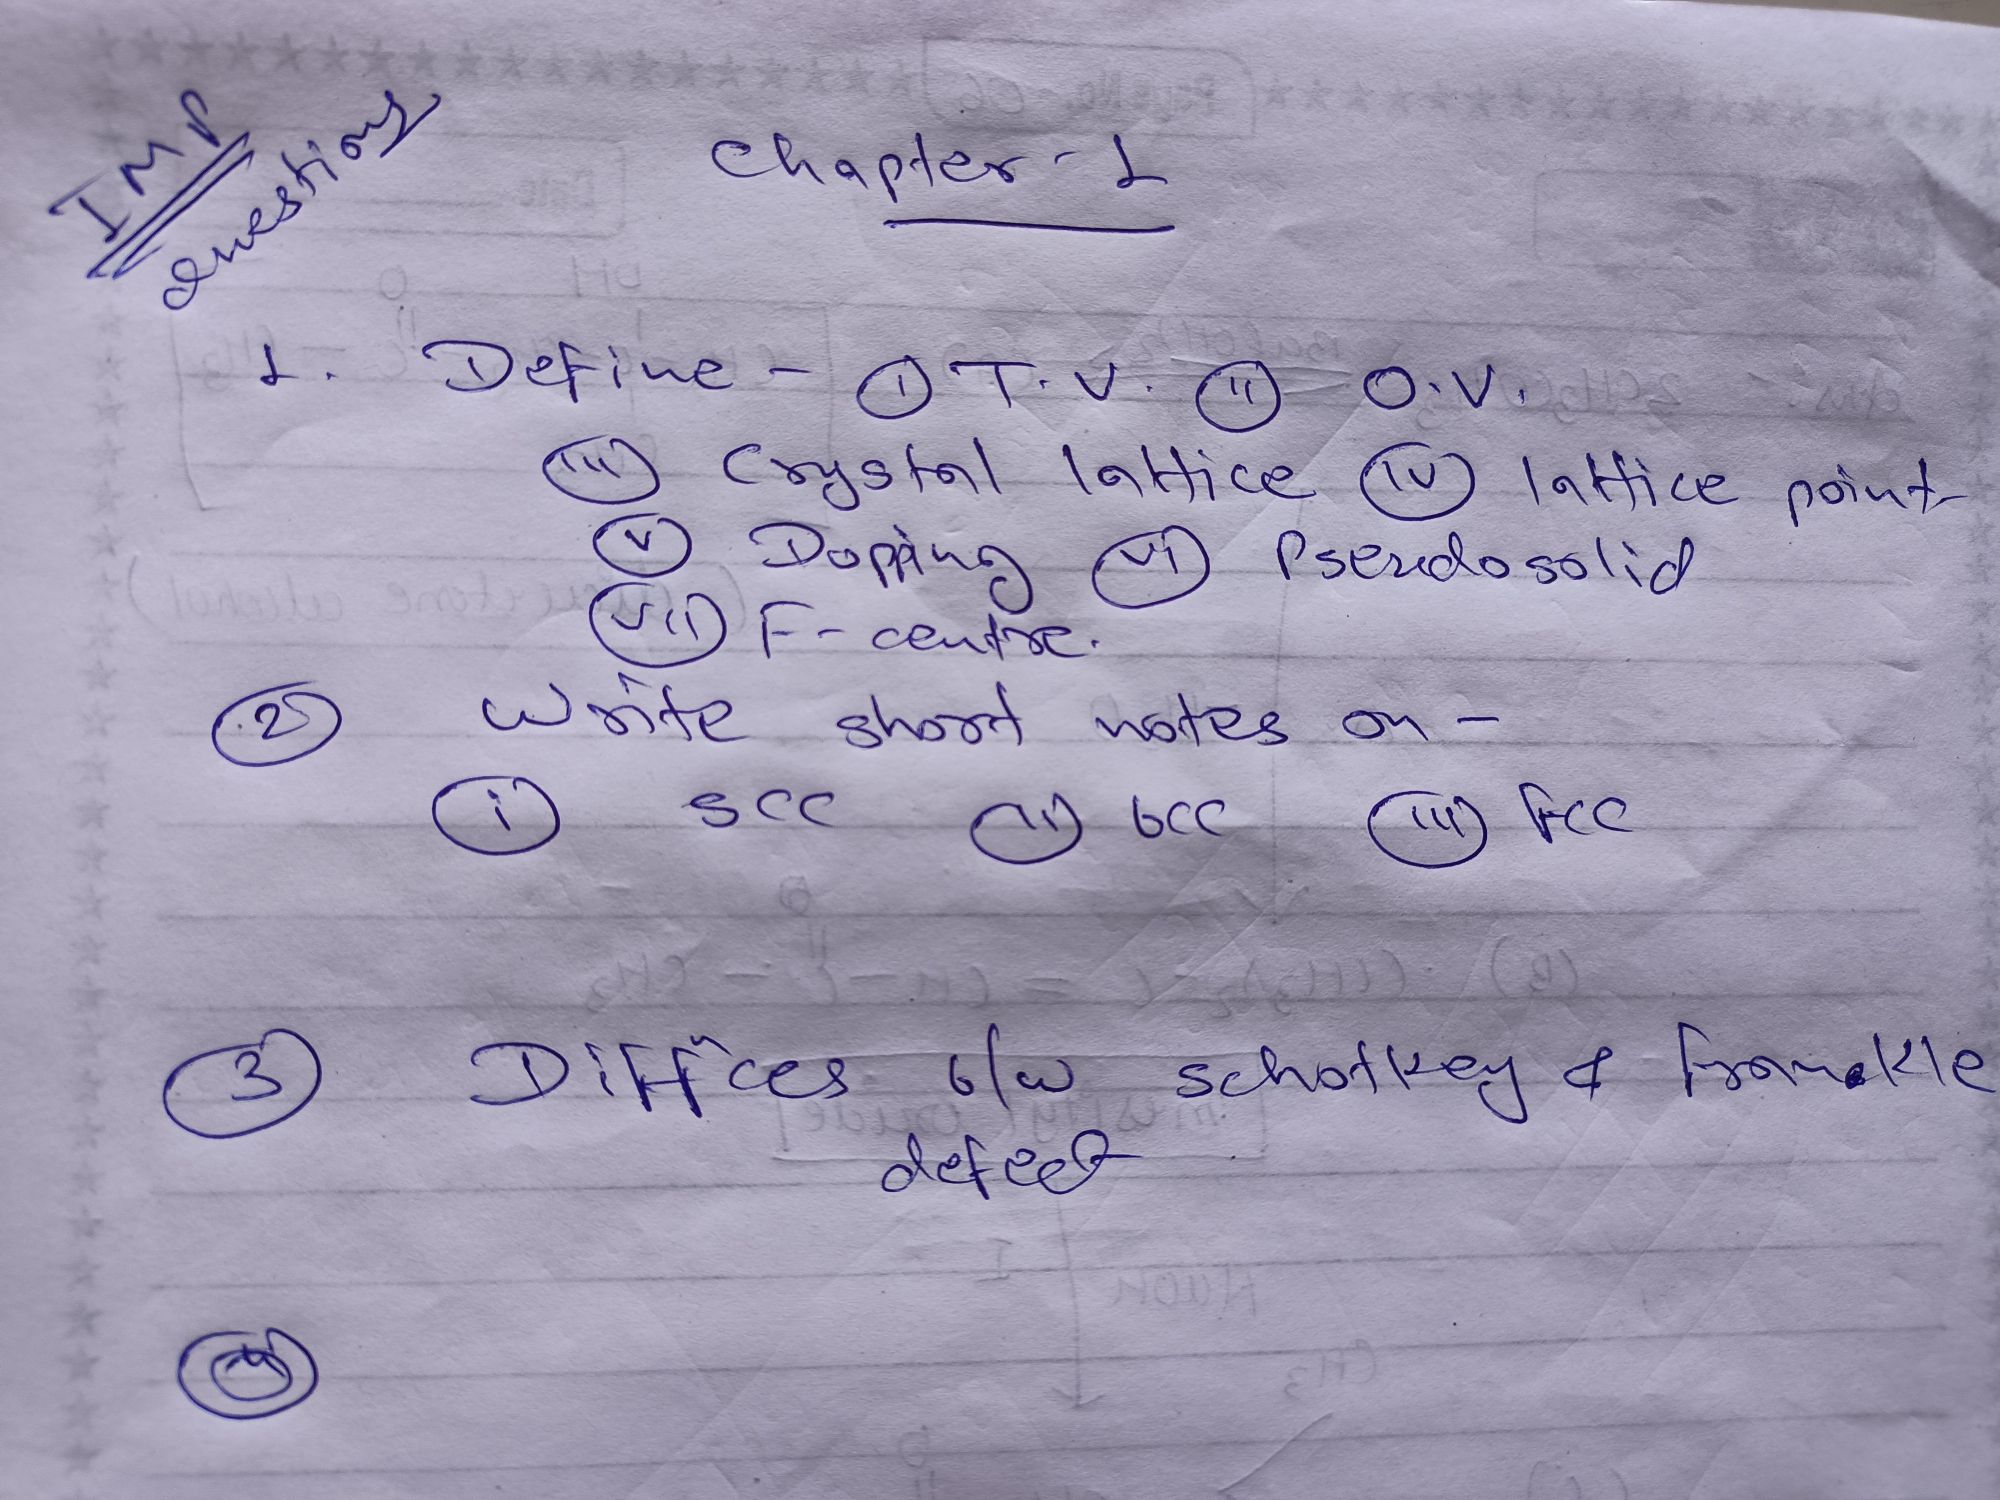 IMP
questions
Chapter - 1
1. Define - (i) T.V. (ii) O.V.
(iii) Crystal lattice (iv) lattice point
(v) Dopping (vi) Pseudosolid
(vii) F-centre.
(2) Write short notes on -
(i) scc (ii) bcc (iii) fcc
(3) Diff"ces b/w schotkey & franekle
defect